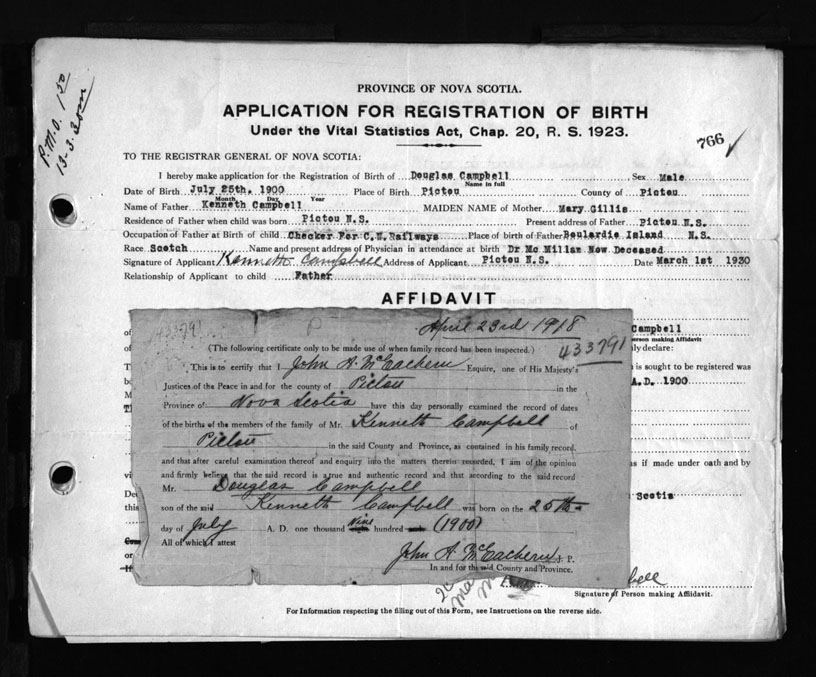 P.M.O. 1.50
13-3-30
PROVINCE OF NOVA SCOTIA.
APPLICATION FOR REGISTRATION OF BIRTH
Under the Vital Statistics Act, Chap. 20, R. S. 1923.
766 ✓
TO THE REGISTRAR GENERAL OF NOVA SCOTIA:
I hereby make application for the Registration of Birth of Douglas Campbell Sex Male
Name in full
Date of Birth July 25th. 1900 Place of Birth Pictou County of Pictou
Month Day Year
Name of Father Kenneth Campbell MAIDEN NAME of Mother Mary Gillis
Residence of Father when child was born Pictou N.S. Present address of Father Pictou N.S.
Occupation of Father at Birth of child Checker For C.N.Railways Place of birth of Father Boulardie Island N.S.
Race Scotch Name and present address of Physician in attendance at birth Dr Mc Millan Now Deceased
Signature of Applicant Kenneth Campbell Address of Applicant Pictou N.S. Date March 1st 1930
Relationship of Applicant to child Father
AFFIDAVIT
Campbell
person making Affidavit
ly declare:
n is sought to be registered was
A.D. 1900
as if made under oath and by
Scotia
433791
April 23rd 1918
(The following certificate only to be made use of when family record has been inspected.)
433791
This is to certify that I John A. McEachern Esquire, one of His Majesty's
Justices of the Peace in and for the county of Pictou in the
Province of Nova Scotia have this day personally examined the record of dates
of the births of the members of the family of Mr. Kenneth Campbell of
Pictou in the said County and Province, as contained in his family record.
and that after careful examination thereof and enquiry into the matters therein recorded, I am of the opinion
and firmly believe that the said record is a true and authentic record and that according to the said record
Mr. Douglas Campbell
son of the said Kenneth Campbell was born on the 25th
day of July A. D. one thousand eight nine hundred (1900)
All of which I attest
John A. McEachern J. P.
In and for the said County and Province.
bell
Signature of Person making Affidavit.
For Information respecting the filling out of this Form, see Instructions on the reverse side.